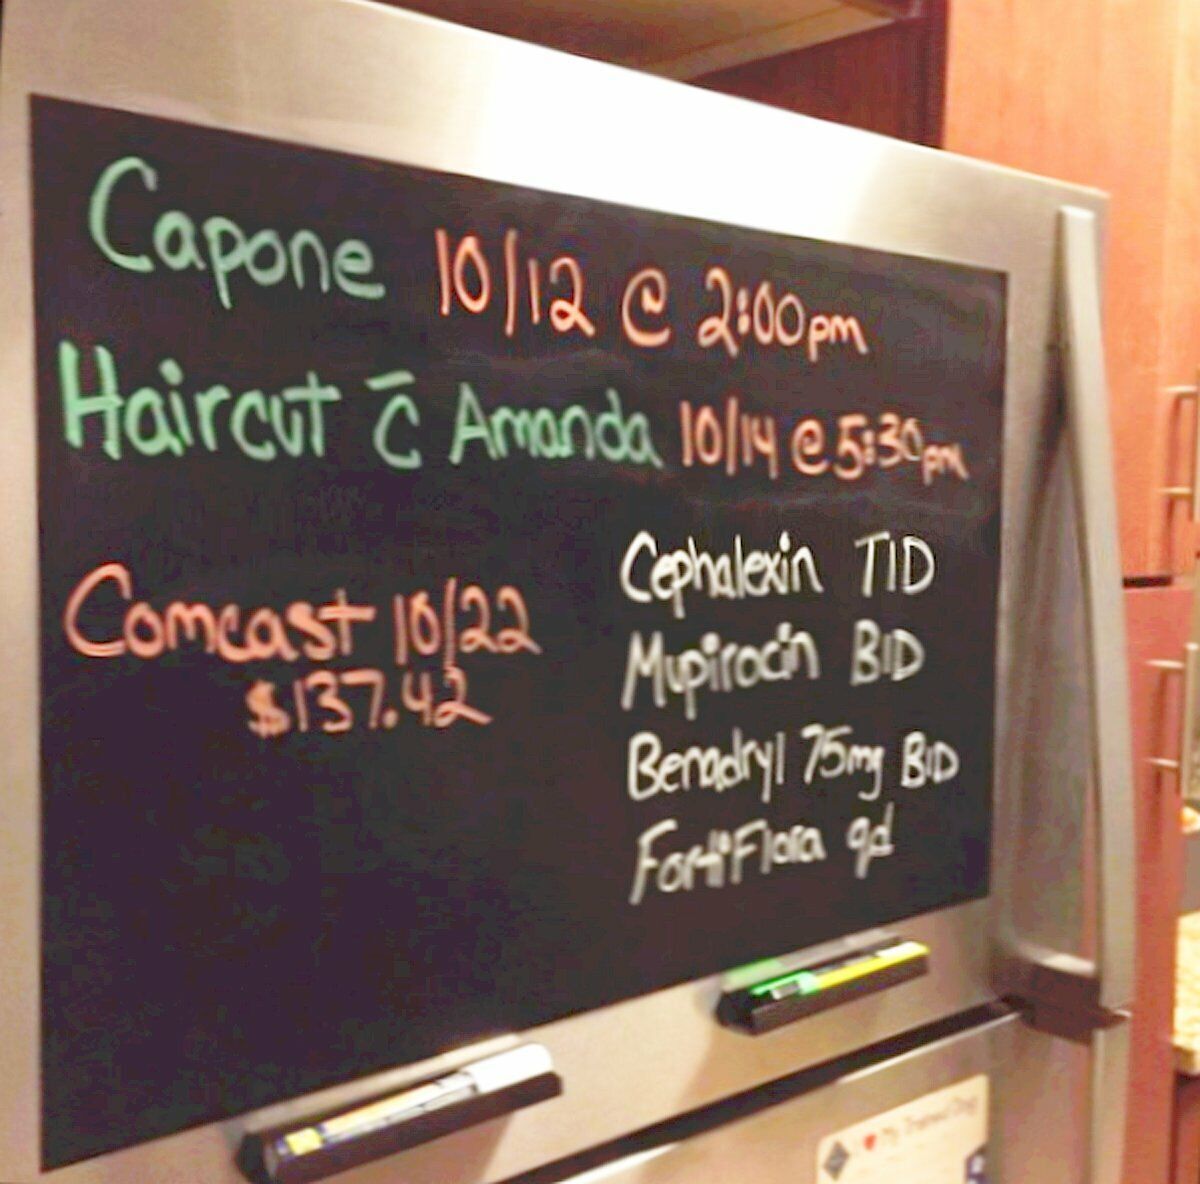 Capone 10/12 @ 2:00pm
Haircut c̄ Amanda 10/14 @ 5:30pm
Comcast 10/22
$137.42
Cephalexin TID
Mupirocin BID
Benadryl 75mg BID
FortiFlora qd
I ❤ My Trained Dog